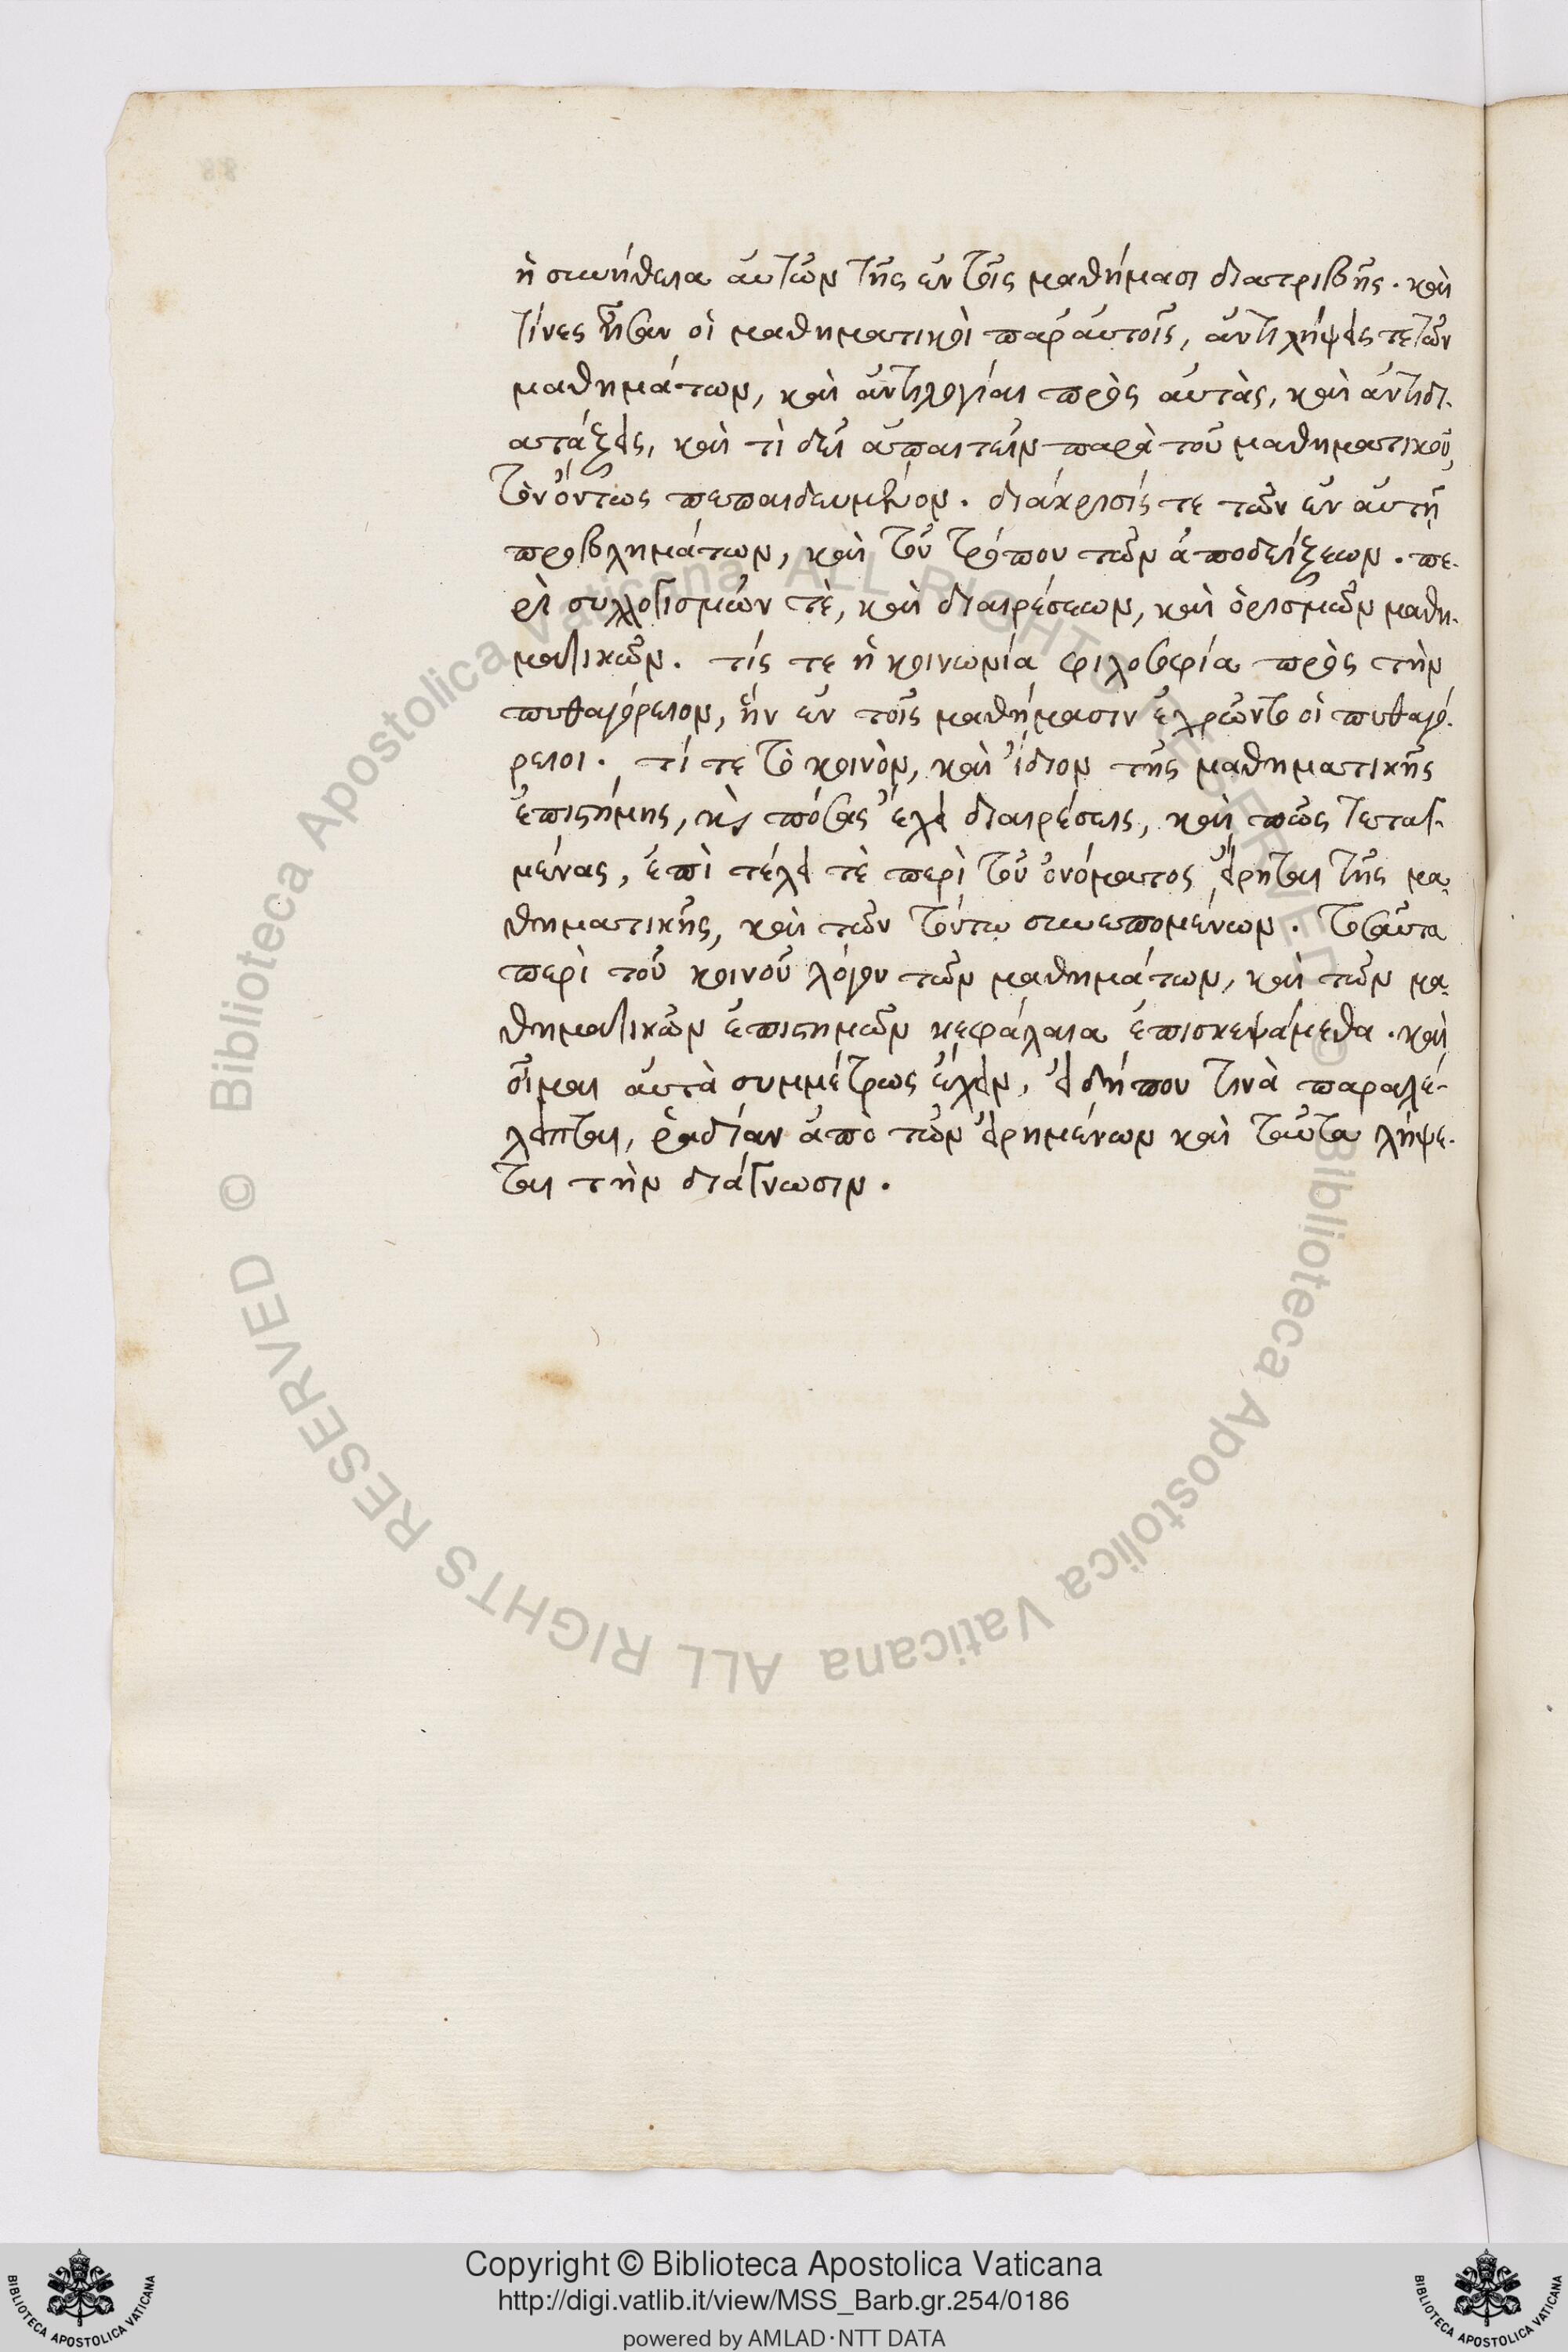 ἡ συνήθεια αὐτῶν τῆς ἐν τοῖς μαθήμασι διατριβῆς. καὶ
τίνες ἦσαν οἱ μαθηματικοὶ παρ' αὐτοῖς, ἀντιλήψεις τε τῶν
μαθημάτων, καὶ ἀντιλογίαι πρὸς αὐτὰς, καὶ ἀντιδι-
ατάξεις, καὶ τὶ δεῖ ἀπαιτεῖν παρὰ τοῦ μαθηματικοῦ,
τὸν ὄντως πεπαιδευμένον. διάκρισίς τε τῶν ἐν αὐτῇ
προβλημάτων, καὶ τοῦ τρόπου τῶν ἀποδείξεων. πε-
ρὶ συλλογισμῶν τὲ, καὶ διαιρέσεων, καὶ ὁρισμῶν μαθη-
ματικῶν. τίς τε ἡ κοινωνία φιλοσοφία πρὸς τὴν
πυθαγόρειον, ἣν ἐν τοῖς μαθήμασιν ἐχρῶντο οἱ πυθαγό-
ρειοι. τί τε τὸ κοινὸν, καὶ ἴδιον τῆς μαθηματικῆς
ἐπιστήμης, καὶ πόσας ἔχει διαιρέσεις, καὶ πῶς τεταγ-
μένας, ἐπὶ τέλει τὲ περὶ τοῦ ὀνόματος εἴρηται τῆς μα-
θηματικῆς, καὶ τῶν τούτω συνεπομένων. τοσαῦτα
περὶ τοῦ κοινοῦ λόγου τῶν μαθημάτων, καὶ τῶν μα-
θηματικῶν ἐπιστημῶν κεφάλαια ἐπισκεψάμεθα. καὶ
οἶμαι αὐτὰ συμμέτρως ἔχειν, εἰ δήπου τινὰ παραλέ-
λειπται, ῥαδίαν ἀπὸ τῶν εἰρημένων καὶ ταῦτα λήψε-
ται τὴν διάγνωσιν.
Copyright © Biblioteca Apostolica Vaticana
http://digi.vatlib.it/view/MSS_Barb.gr.254/0186
powered by AMLAD·NTT DATA
BIBLIOTECA APOSTOLICA VATICANA
BIBLIOTECA APOSTOLICA VATICANA
© Biblioteca Apostolica Vaticana ALL RIGHTS RESERVED © Biblioteca Apostolica Vaticana ALL RIGHTS RESERVED